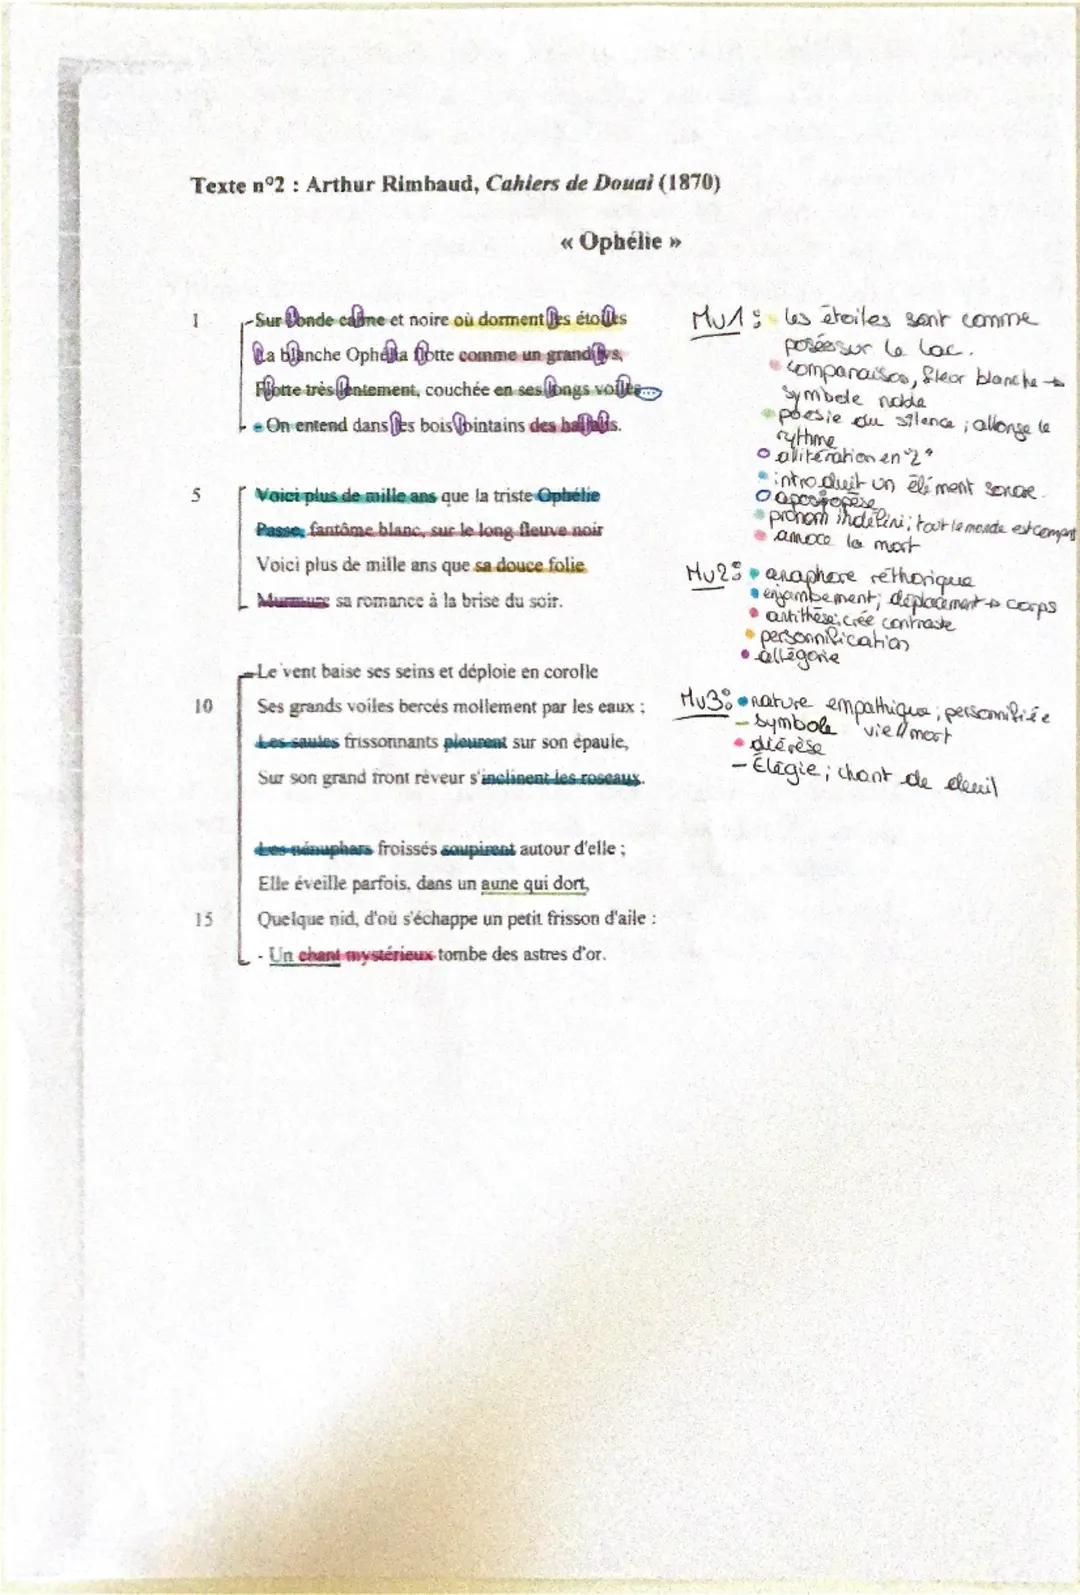 Texte n°2 : Arthur Rimbaud, Cahiers de Douai (1870)
« Ophélie »
1 - Sur l'onde calme et noire où dorment les étoiles
La blanche Ophélia flotte comme un grand lys,
Flotte très lentement, couchée en ses longs voiles...
- On entend dans les bois lointains des hallalis.
5 Voici plus de mille ans que la triste Ophélie
Passe, fantôme blanc, sur le long fleuve noir
Voici plus de mille ans que sa douce folie
Murmure sa romance à la brise du soir.
Le vent baise ses seins et déploie en corolle
10 Ses grands voiles bercés mollement par les eaux ;
Les saules frissonnants pleurent sur son épaule,
Sur son grand front rêveur s'inclinent les roseaux.
Les nénuphars froissés soupirent autour d'elle ;
Elle éveille parfois, dans un aune qui dort,
15 Quelque nid, d'où s'échappe un petit frisson d'aile :
- Un chant mystérieux tombe des astres d'or.
Mv1 : les étoiles sont comme
posées sur le lac.
comparaison, fleur blanche →
symbole
poésie du silence ; allonge le
rythme
allitération en "l"
introduit un élément sonore
aposiopèse
pronom indéfini ; tout le monde est compris
amorce la mort
Mv2 : anaphore réthorique
enjambement ; déplacement → corps
antithèse ; crée contraste
personnification
allégorie
Mv3 : nature empathique ; personnifiée
- symbole vie//mort
diérèse
- Élégie ; chant de deuil